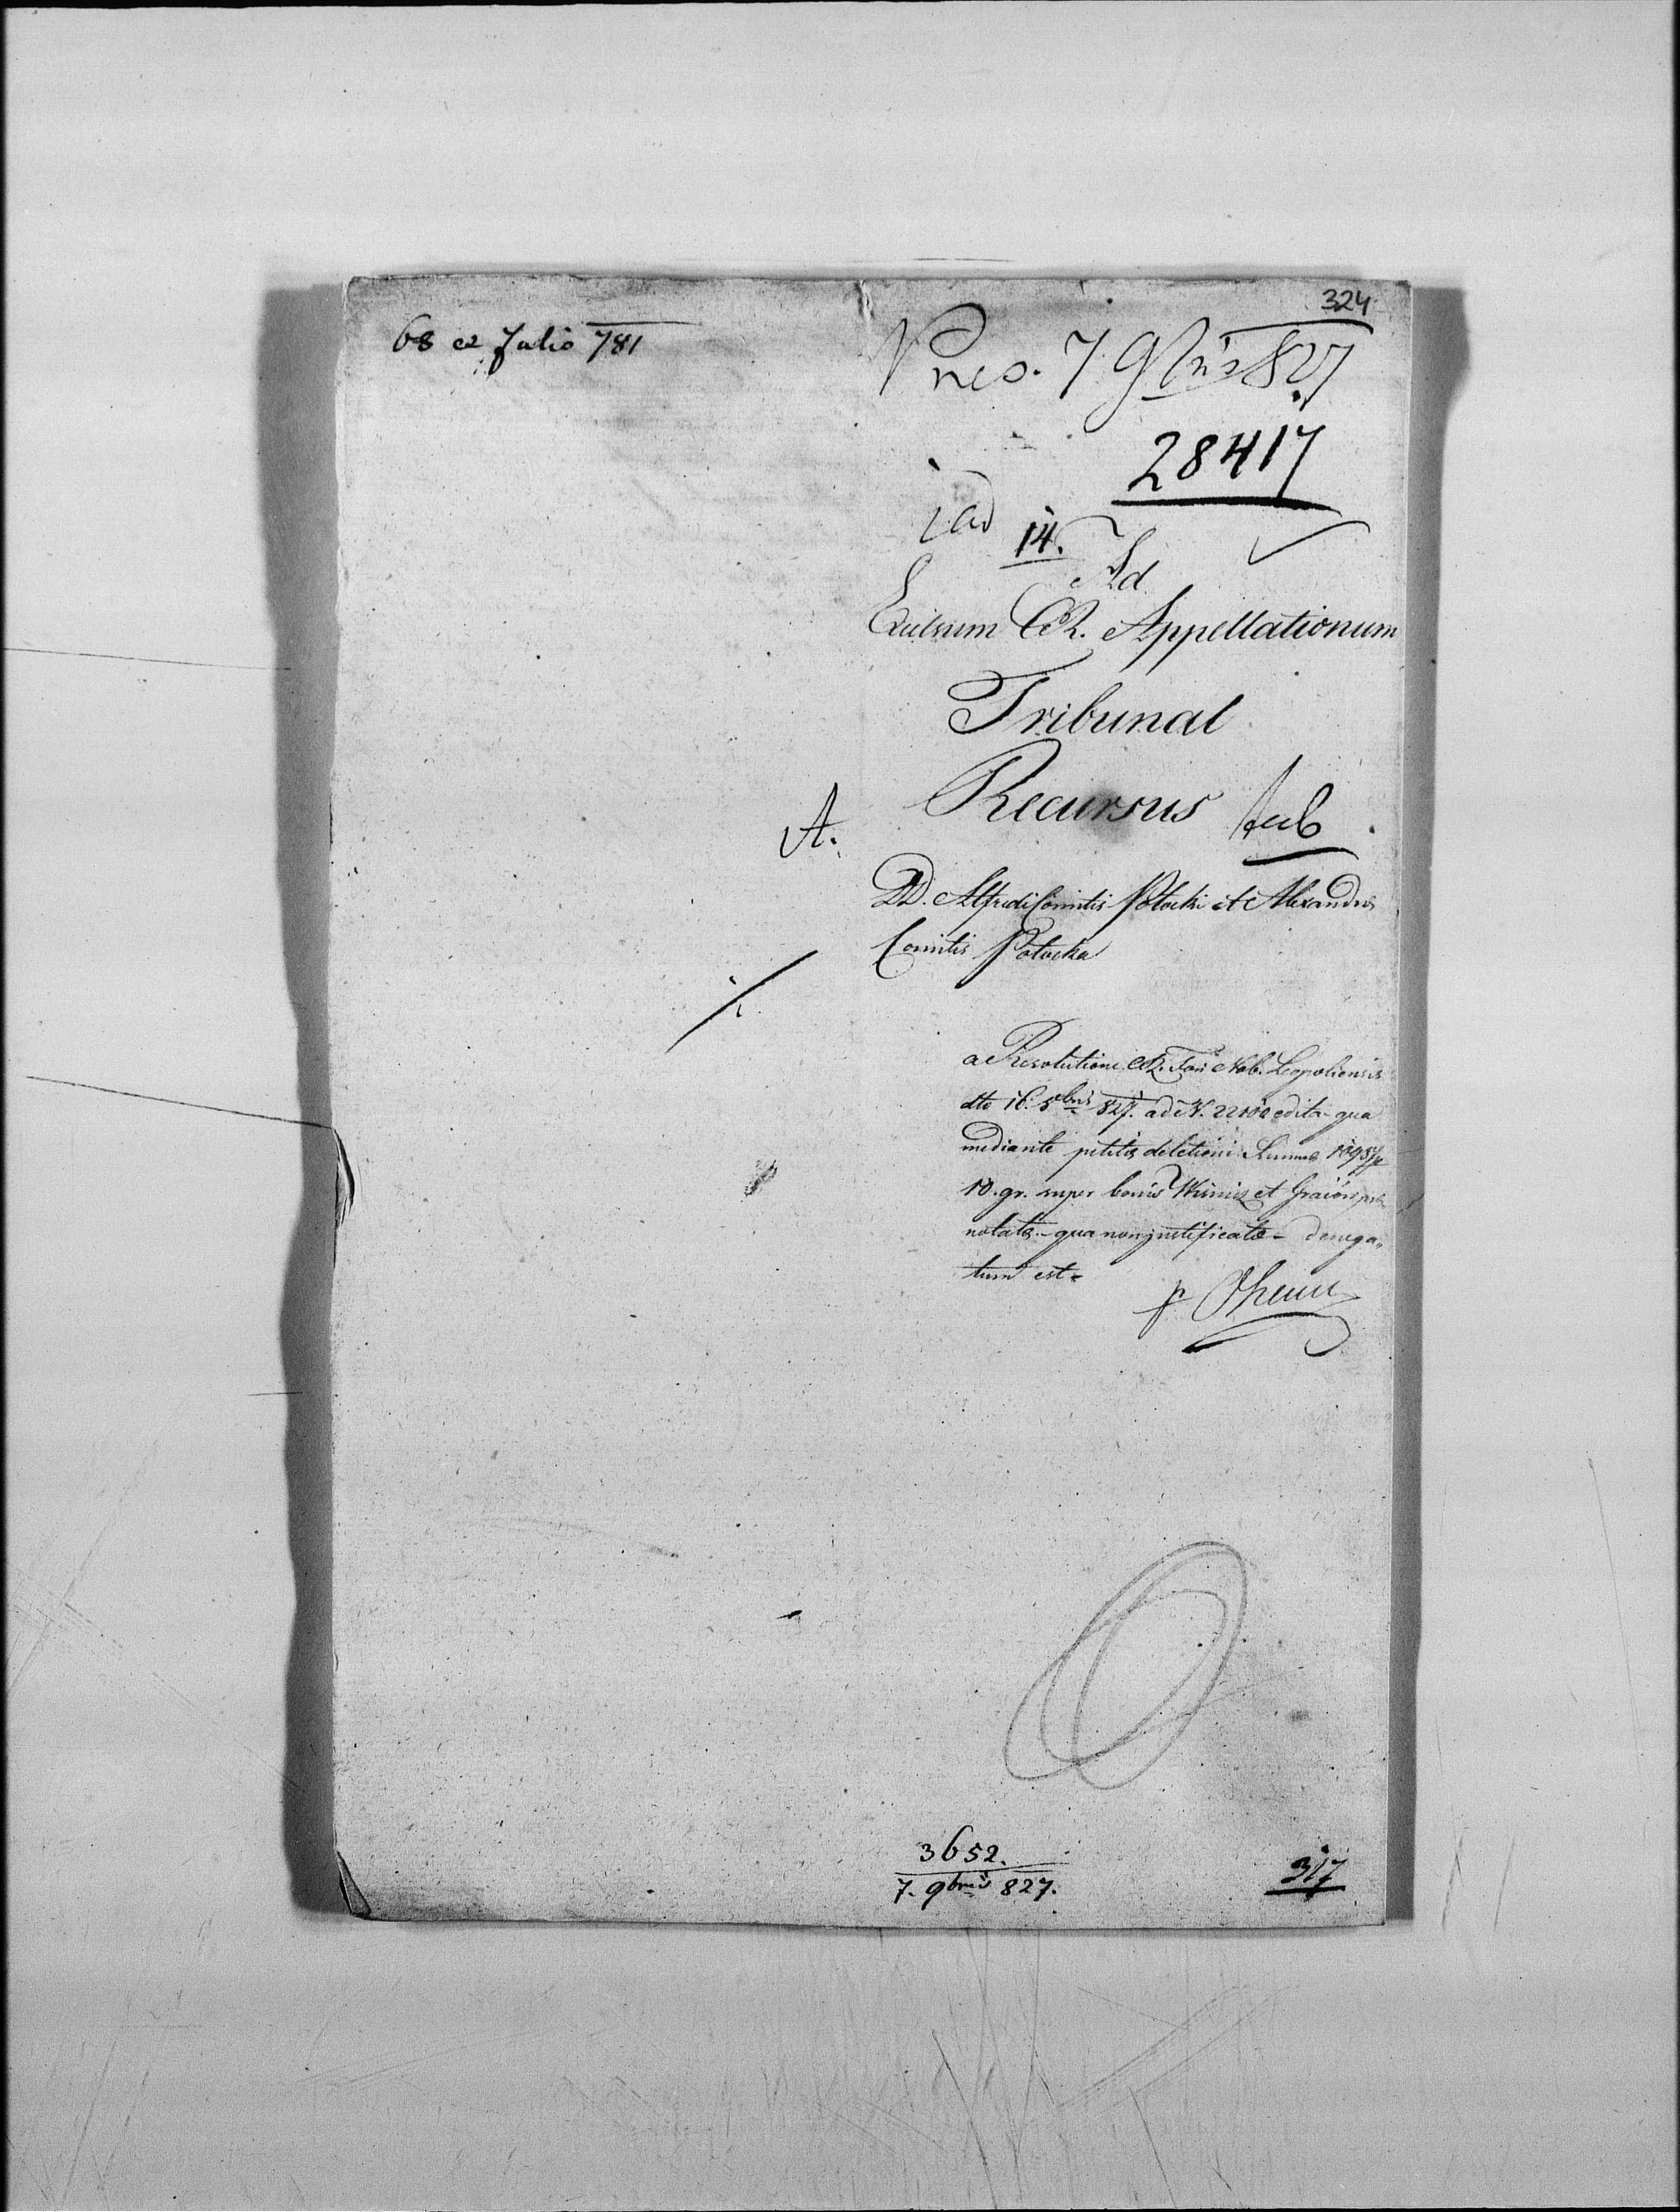 324
68 ex Julio 781
Pres. 7 9bris 827
28417
ad
14.
Ad
Excelsum CR. Appellationum
Tribunal
Recursus
A.
DD. Alfredi Comitis Potocki et Alexandra
Comitis Potocka
a Resolutione CR. Fori Nob. Leopoliensis
dto 16. 8bris 827. ad N. edita qua
mediante petitis deletioni Summae
10. gr. super bonis et
notata - qua non justificata - denega„
tum est -
3652.
7. 9bris 827.
317